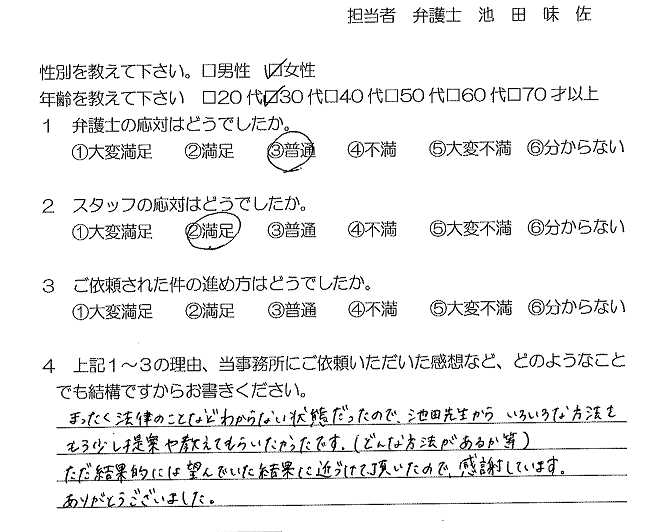 担当者 弁護士 池 田 味 佐
性別を教えて下さい。□男性 ☑女性
年齢を教えて下さい □20代☑30代□40代□50代□60代□70才以上
1 弁護士の応対はどうでしたか。
①大変満足 ②満足 ③普通 ④不満 ⑤大変不満 ⑥分からない
2 スタッフの応対はどうでしたか。
①大変満足 ②満足 ③普通 ④不満 ⑤大変不満 ⑥分からない
3 ご依頼された件の進め方はどうでしたか。
①大変満足 ②満足 ③普通 ④不満 ⑤大変不満 ⑥分からない
4 上記1~3の理由、当事務所にご依頼いただいた感想など、どのようなこと
でも結構ですからお書きください。
まったく法律のことなどわからない状態だったので、池田先生から いろいろな方法を
もう少し提案や教えてもらいたかったです。(どんな方法があるか等)
ただ結果的には望んでいた結果に近づけて頂いたので、感謝しています。
ありがとうございました。